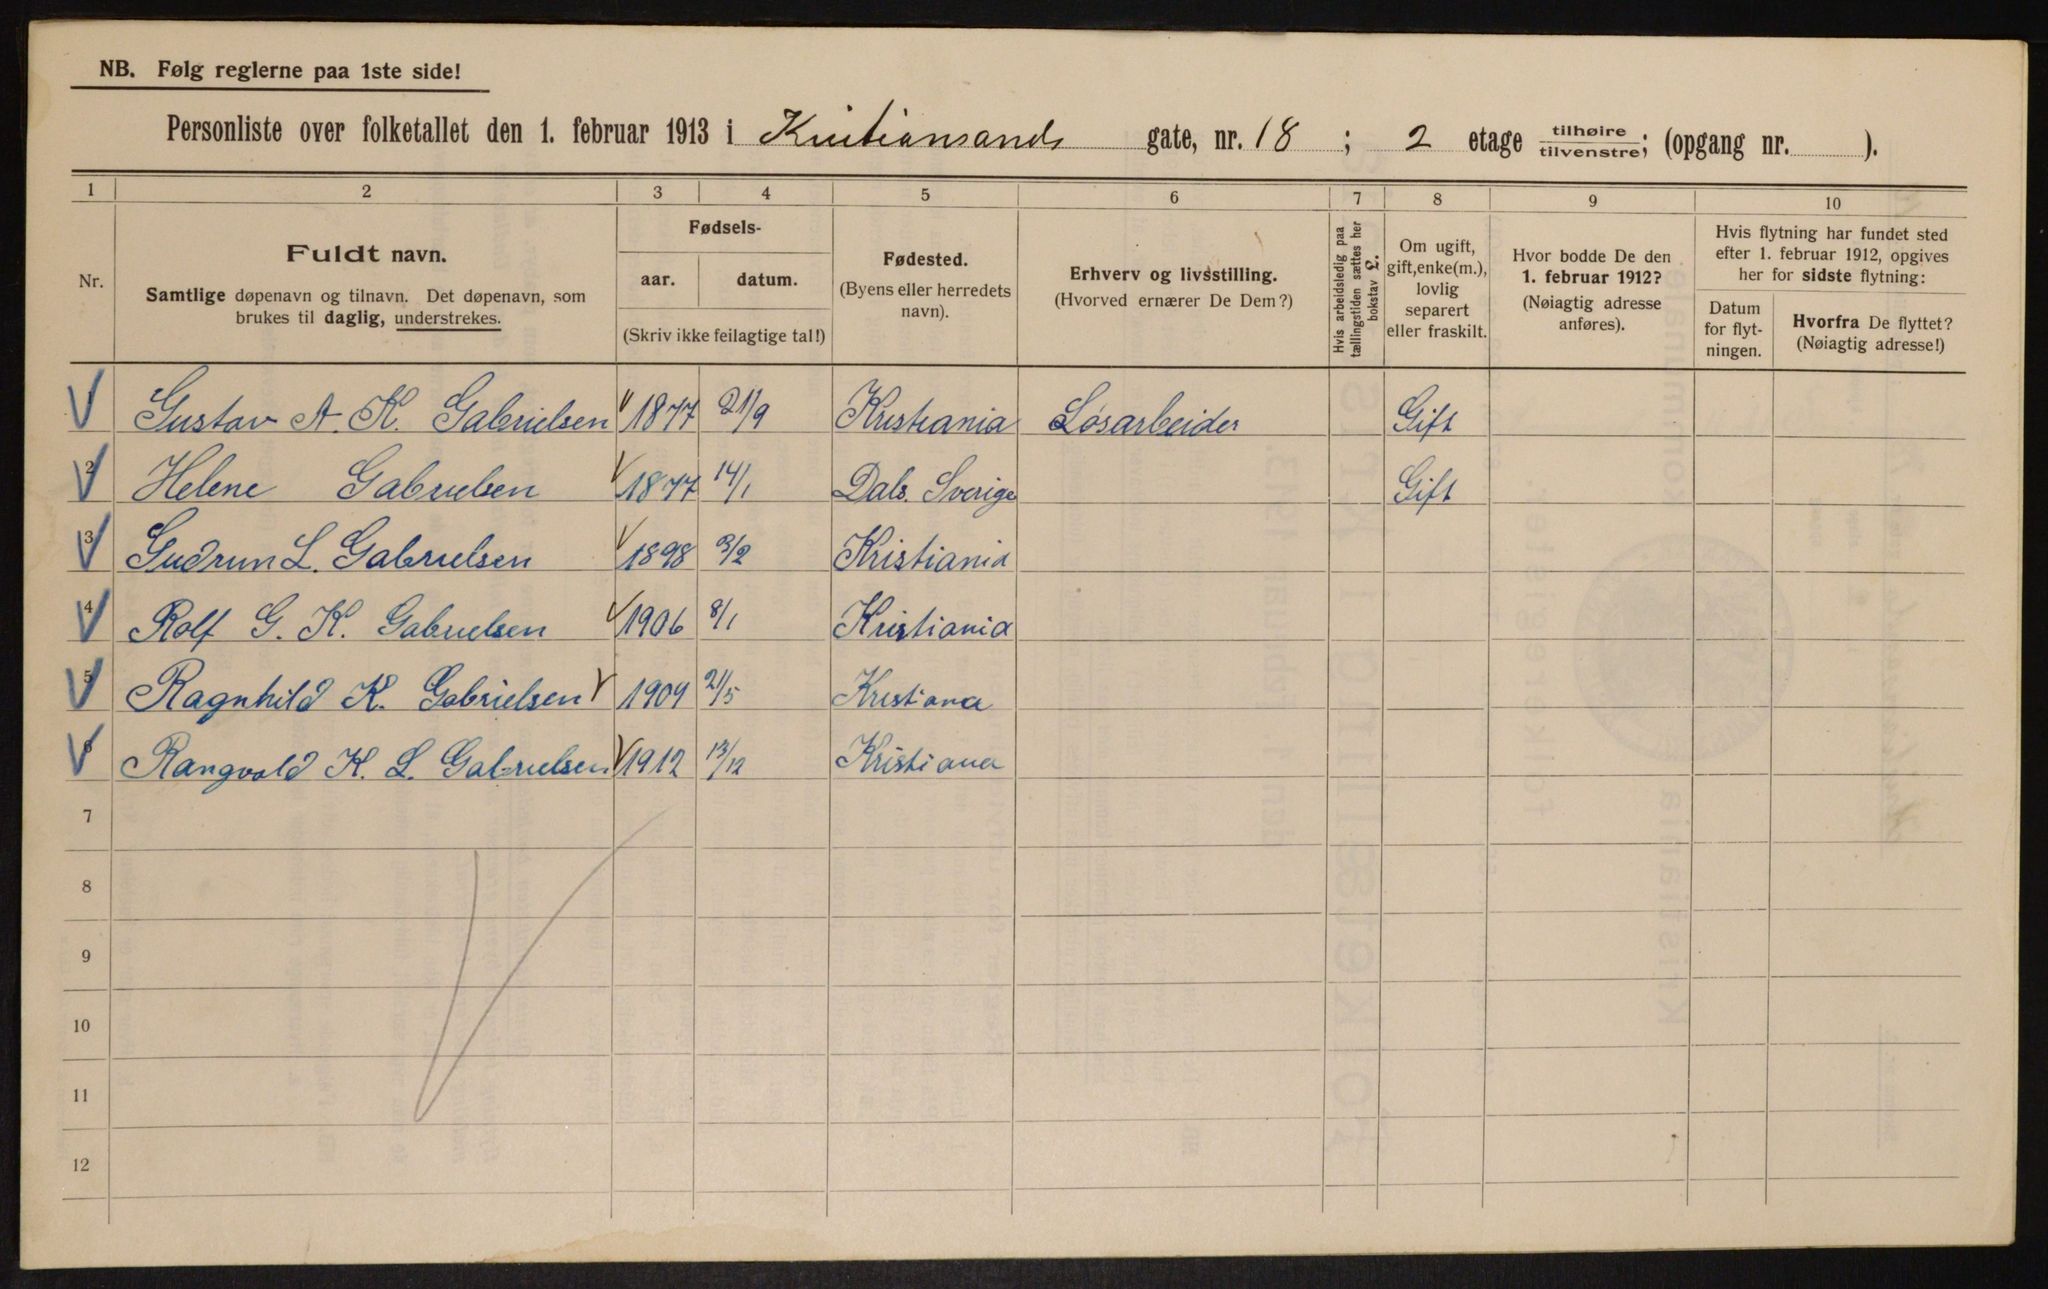 NB. Følg reglerne paa 1ste side!
Personliste over folketallet den 1. februar 1913 i Kristiansands gate, nr. 18 ; 2 etage tilhøire / tilvenstre; (opgang nr. ).
1 2 3 4 5 6 7 8 9 10
Nr.
Fuldt navn.
Samtlige døpenavn og tilnavn. Det døpenavn, som
brukes til daglig, understrekes.
Fødsels-
aar. datum.
(Skriv ikke feilagtige tal!)
Fødested.
(Byens eller herredets
navn).
Erhverv og livsstilling.
(Hvorved ernærer De Dem?)
Hvis arbeidsledig paa
tællingstiden sættes her
bokstav L.
Om ugift,
gift, enke(m.),
lovlig
separert
eller fraskilt.
Hvor bodde De den
1. februar 1912?
(Nøiagtig adresse
anføres).
Hvis flytning har fundet sted
efter 1. februar 1912, opgives
her for sidste flytning:
Datum
for flyt-
ningen.
Hvorfra De flyttet?
(Nøiagtig adresse!)
1 Gustav A. K. Gabrielsen 1877 21/9 Kristiania Løsarbeider Gift
2 Helene Gabrielsen 1877 14/1 Dals. Sverige Gift
3 Gudrun L. Gabrielsen 1898 3/2 Kristiania
4 Rolf G. K. Gabrielsen 1906 8/1 Kristiania
5 Ragnhild K. Gabrielsen 1909 21/5 Kristiana
6 Rangvald K. L. Gabrielsen 1912 13/12 Kristiana
7
8
9
10
11
12